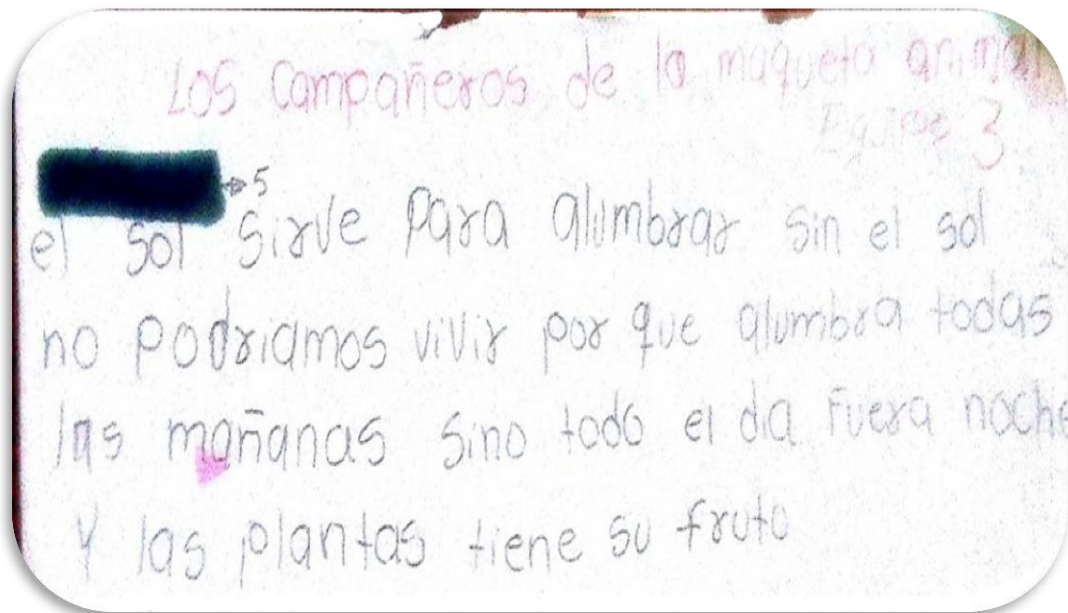 Los Campañeros de la maqueta animal
Equipo 3
5
el sol sirve para alumbrar sin el sol
no podriamos vivir por que alumbra todas
las mañanas sino todo el dia fuera noche
Y las plantas tiene su fruto